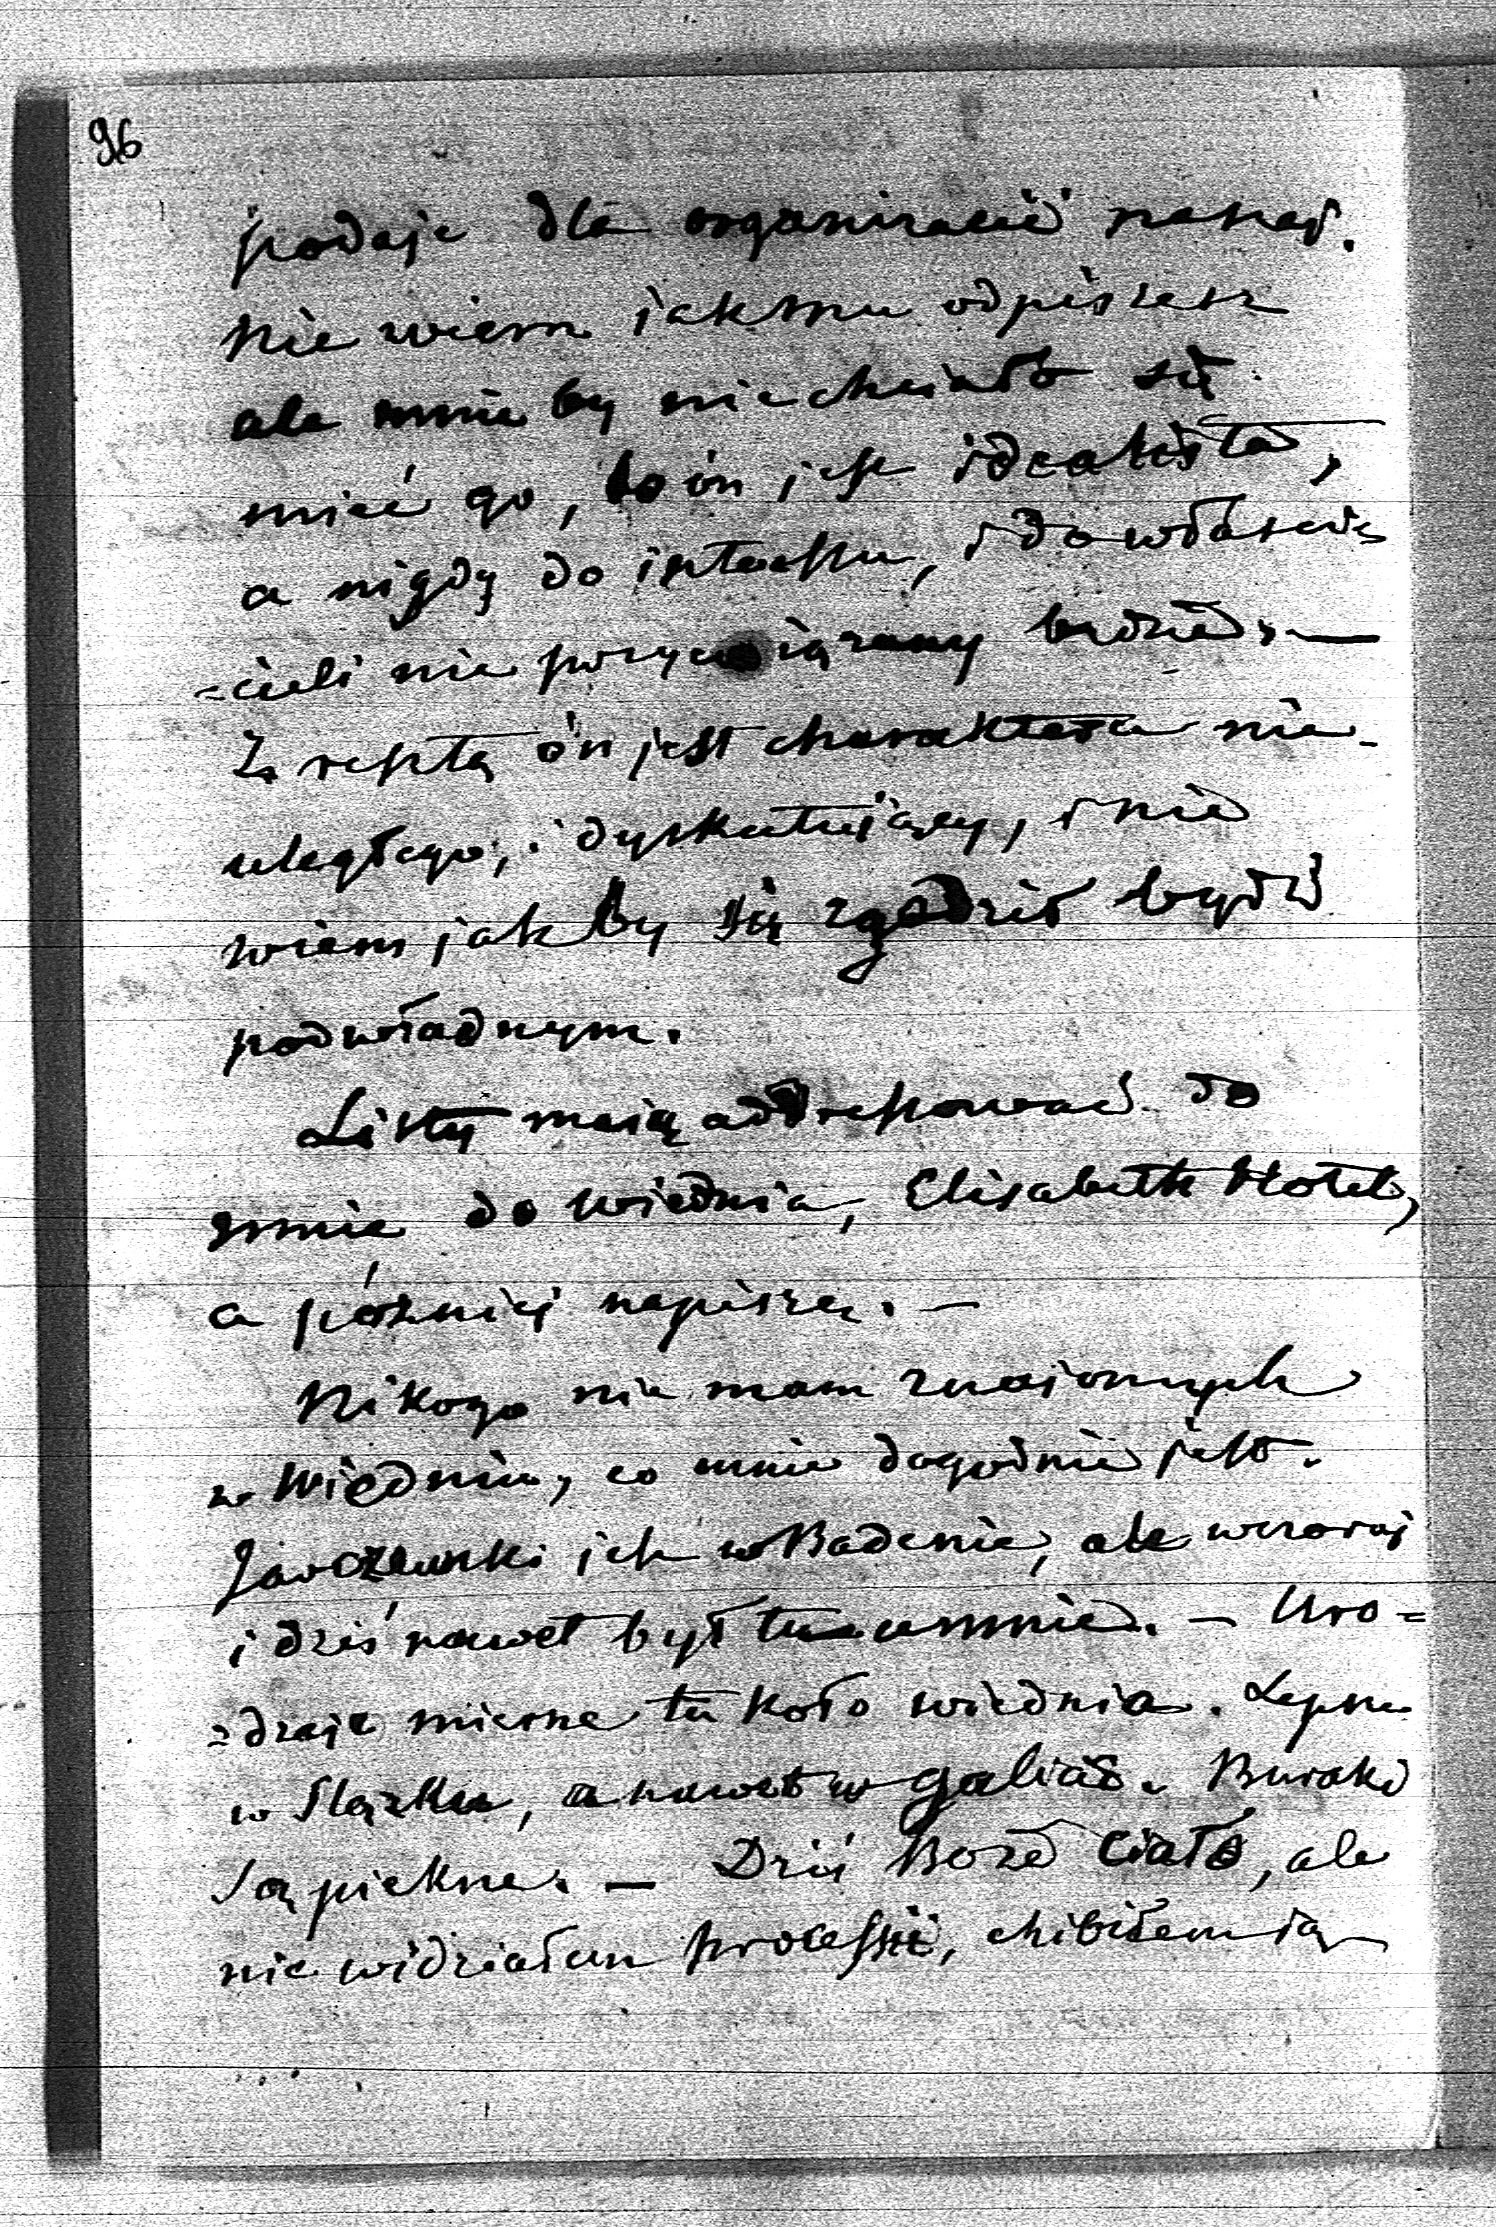 96
podaje dla organizacii naszej.
Nie wiem jak mu odpiszesz
ale mnie by nie chciało się
mieć go, bo ón jest idealista,
a nigdy do interessu, i do właści
=cieli nie przywiązany będzie. —
Zresztą ón jest charaktera nie
uległego, i dyskutujący, i nie
wiem jak by się zgodził bydź
podwładnym.
Listy maią addressować do
mnie do Wiednia, Elisabeth Hotel,
a późniéj napiszę. —
Nikogo nie mam znaiomych
w Wiedniu, co mnie dogodnie jest.
Jarczewski jest w Badenie, ale wczoraj
i dziś nawet był tu u mnie. — Uro=
=dzaje mierne tu koło Wiednia. Lepsze
w Slązku, a nawet w Galicii. Buraki
Są piekne. — Dziś Boże Ciało, ale
nie widziałem processii, chibiłem ią